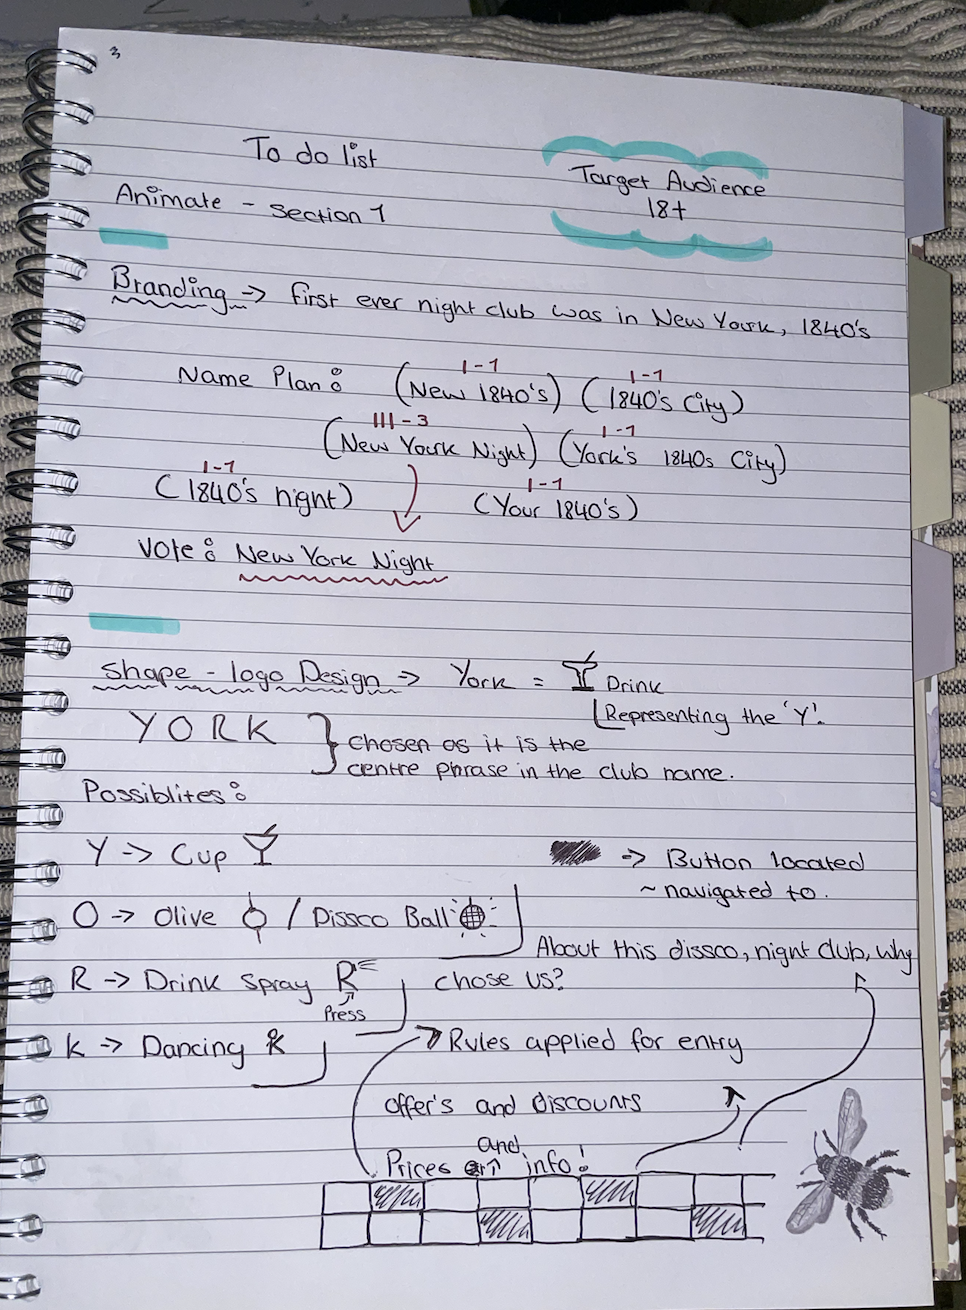 3
To do list
Target Audience
18+
Animate - section 1
Branding -> first ever night club was in New Yourk, 1840's
I-1 I-1
Name Plan: (New 1840's) (1840's City)
III-3 I-1
(New Yourk Night) (York's 1840s City)
I-1 I-1
(1840's night) (Your 1840's)
Vote: New York Night
Shape - logo Design -> York = Drink
Representing the 'Y'.
YORK
chosen as it is the
centre phrase in the club name.
Possiblites:
Y -> Cup
-> Button located
~ navigated to.
O -> Olive / Dissco Ball
About this dissco, night club, why
chose us?
R -> Drink Spray R
Press
K -> Dancing K
Rules applied for entry
offer's and discounts
and
Prices info!